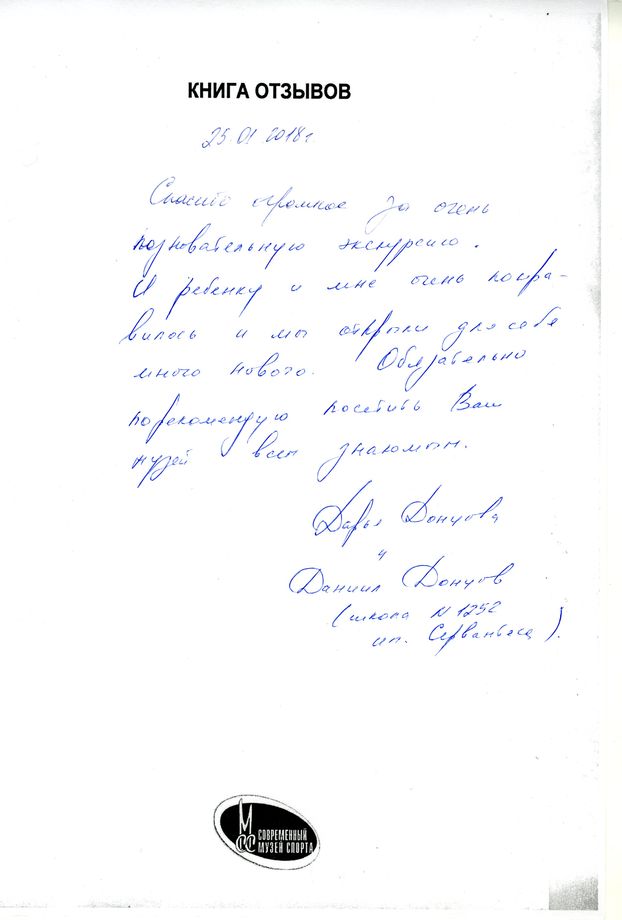 КНИГА ОТЗЫВОВ
25.01 2018 г
Спасибо огромное за очень
познавательную экскурсию.
И ребенку и мне очень понра-
вилось и мы открыли для себя
много нового. Обязательно
порекомендую посетить Ваш
музей всем знакомым.
Дарья Донцова
и
Даниил Донцов
(школа N 1252
им. Сервантеса).
М
СС СОВРЕМЕННЫЙ
МУЗЕЙ СПОРТА